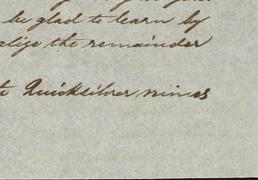 be glad to learn by
alize the remainder
to Quicksilver mines